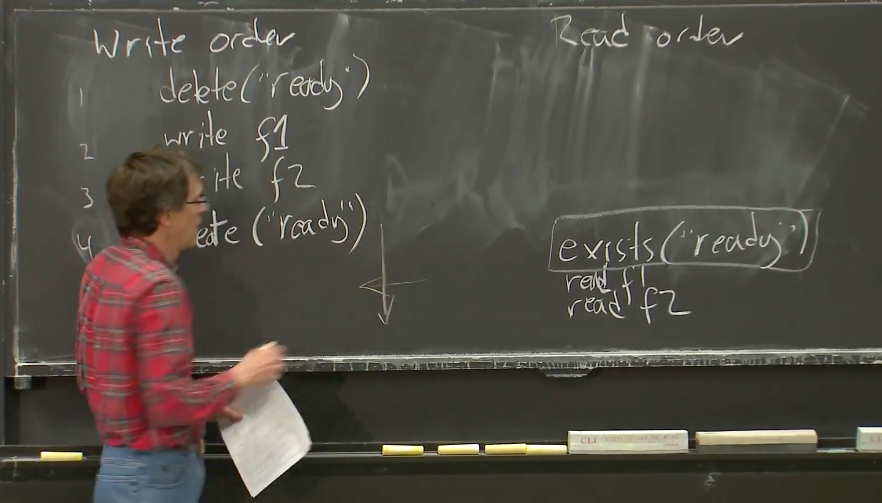 Write order
Read order
1 delete("ready")
2 write f1
3 ite f2
4 eate ("ready")
exists("ready")
read f1
read f2